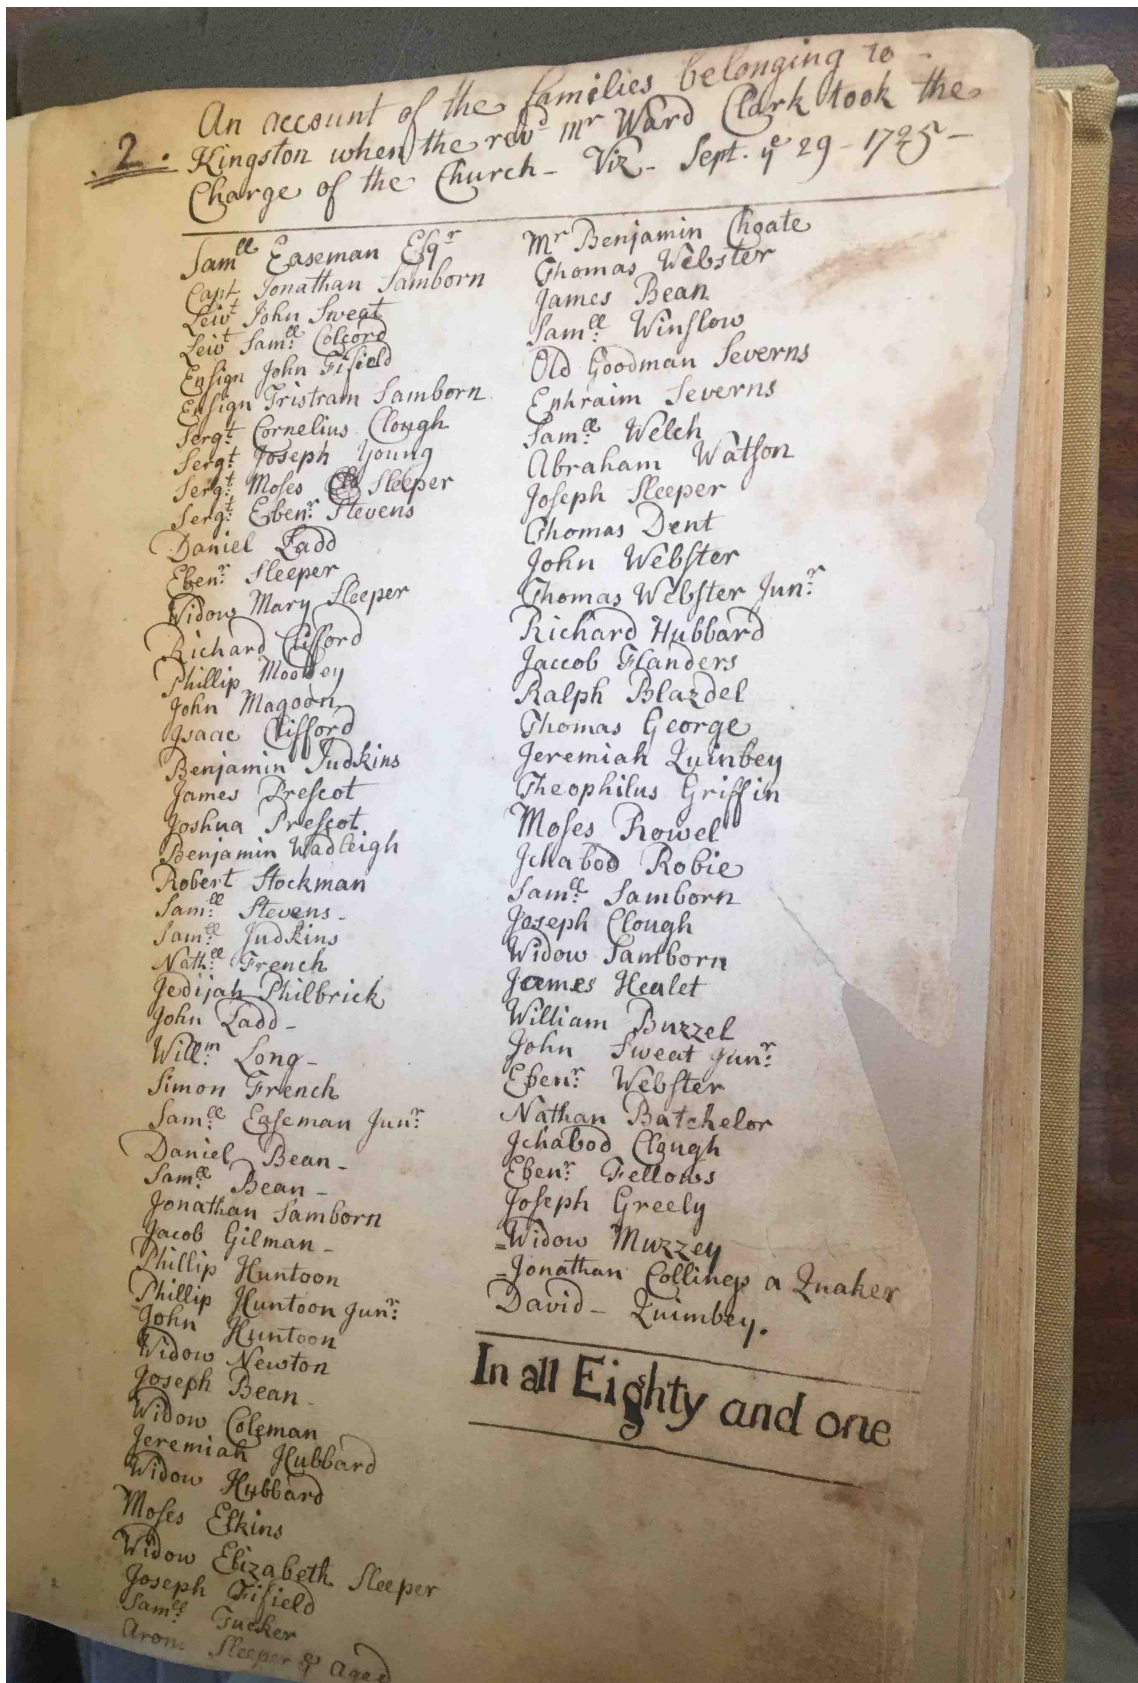 An account of the families belonging to -
2. Kingston when the revd mr Ward Clark took the
Charge of the Church - Viz - Sept. ye 29 - 1725 -
Samll Easeman Esqr
Capt Jonathan Samborn
Leivt John Sweat
Leivt Samll Colcord
Ensign John Fifield
Ensign Tristram Samborn
Sergt Cornelius Clough
Sergt Joseph Young
Sergt Moses Sleeper
Sergt Ebenr Stevens
Daniel Ladd
Ebenr Sleeper
Widow Mary Sleeper
Richard Clifford
Phillip Moodey
John Magoon
Isaac Clifford
Benjamin Judkins
James Prescot
Joshua Prescot
Benjamin Wadleigh
Robert Stockman
Samll Stevens -
Samll Judkins
Nathll French
Jedijah Philbrick
John Ladd -
Willm Long -
Simon French
Samll Easeman Junr
Daniel Bean -
Samll Bean -
Jonathan Samborn
Jacob Gilman -
Phillip Huntoon
Phillip Huntoon Junr
John Huntoon
Widow Newton
Joseph Bean -
Widow Coleman
Jeremiah Hubbard
Widow Hubbard
Moses Elkins
Widow Elizabeth Sleeper
Joseph Fifield
Samll Tucker
Aron Sleeper ye Aged
Mr Benjamin Choate
Thomas Webster
James Bean
Samll Winslow
Old Goodman Severns
Ephraim Severns
Samll Welch
Abraham Watson
Joseph Sleeper
Thomas Dent
John Webster
Thomas Webster Junr
Richard Hubbard
Jaccob Flanders
Ralph Blazdel
Thomas George
Jeremiah Quinbey
Theophilus Griffin
Moses Rowel
Ichabod Robie
Samll Samborn
Joseph Clough
Widow Samborn
James Healet
William Buzzel
John Sweat Junr
Ebenr Webster
Nathan Batchelor
Ichabod Clough
Ebenr Fellows
Joseph Greely
- Widow Muzzey
- Jonathan Collings a Quaker
David - Quimbey.
In all Eighty and one